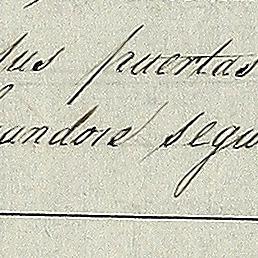 sus puertas
andose segu